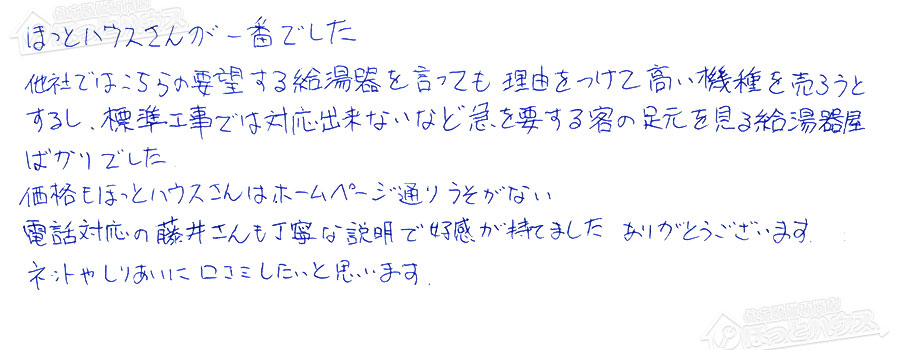 ほっとハウスさんが一番でした
他社ではこちらの要望する給湯器を言っても理由をつけて高い機種を売ろうと
するし、標準工事では対応出来ないなど急を要する客の足元を見る給湯器屋
ばかりでした
価格もほっとハウスさんはホームページ通りうそがない
電話対応の藤井さんも丁寧な説明で好感が持てました ありがとうございます.
ネットやしりあいに口コミしたいと思います.
住宅設備専門店
ほっとハウス